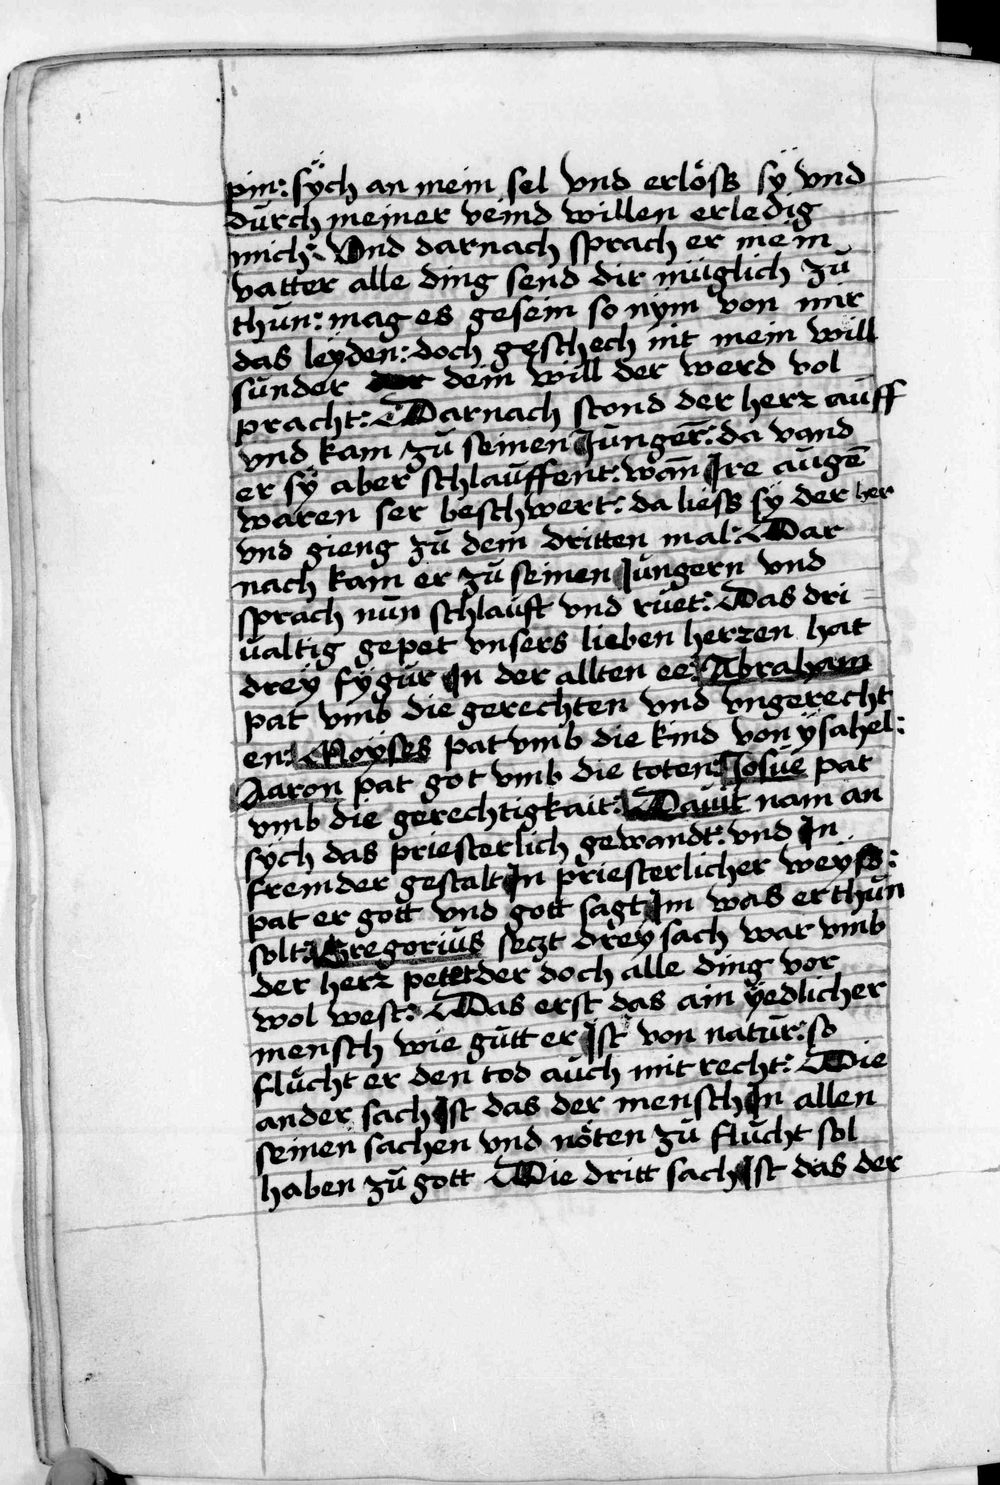 pin: sÿch an mein sel vnd erlöss sÿ vnd
durch meiner veind willen erledig
mich: Vnd darnach sprach er mein
vatter alle ding send dir müglich zů
thůn: mag es gesein so nÿm von mir
das leÿden: doch geschech nit mein will
sunder der dein will der werd vol
pracht: Darnach stond der herr auff
vnd kam zů seinen Jungern̄: da vand
er sÿ aber schlauffent: wan̄ Ire augē
waren ser beschwert: da liess sÿ der her
vnd gieng zů dem dritten mal: Dar
nach kam er zů seinen Jungern vnd
sprach nun schlauft vnd rüet: Das dri
ualtig gepet vnsers lieben herren hat
dreÿ fÿgur In der allten ee: Abraham
pat vmb die gerechten vnd vngerecht
en: Moÿses pat vmb die kind von ÿsahel:
Aaron pat got vmb die toten: Josue pat
vmb die gerechtigkait: Dauit nam an
sÿch das priesterlich gewandt: vnd In
fremder gestalt In priesterlicher weÿss:
pat er gott vnd gott sagt Im was er thůn
solt: Gregorius sezt dreÿ sach war vmb
der herr petet der doch alle ding vor
wol west: Das erst das ain ÿedlicher
mensch wie gůtt er Ist von natur: so
flücht er den tod auch mit recht: Die
ander sach Ist das der mensch In allen
seinen sachen vnd nöten zů flucht sol
haben zů gott Die dritt sach Ist das der